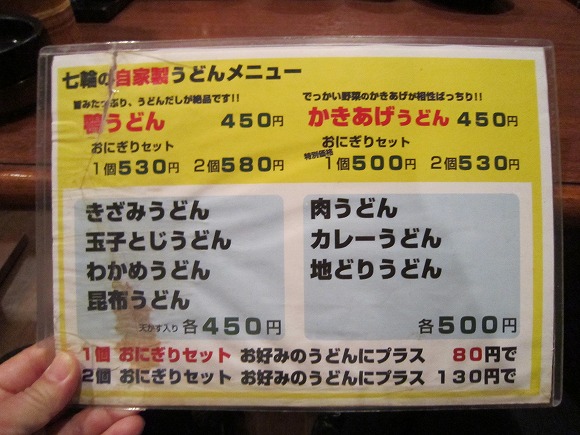 七輪の自家製うどんメニュー
旨みたっぷり、うどんだしが絶品です!!
鴨うどん 450円
おにぎりセット
1個530円 2個580円
でっかい野菜のかきあげが相性ばっちり!!
かきあげうどん 450円
おにぎりセット
特別価格 1個500円 2個530円
きざみうどん
玉子とじうどん
わかめうどん
昆布うどん
天かす入り 各450円
肉うどん
カレーうどん
地どりうどん
各500円
1個 おにぎりセット お好みのうどんにプラス 80円で
2個 おにぎりセット お好みのうどんにプラス 130円で